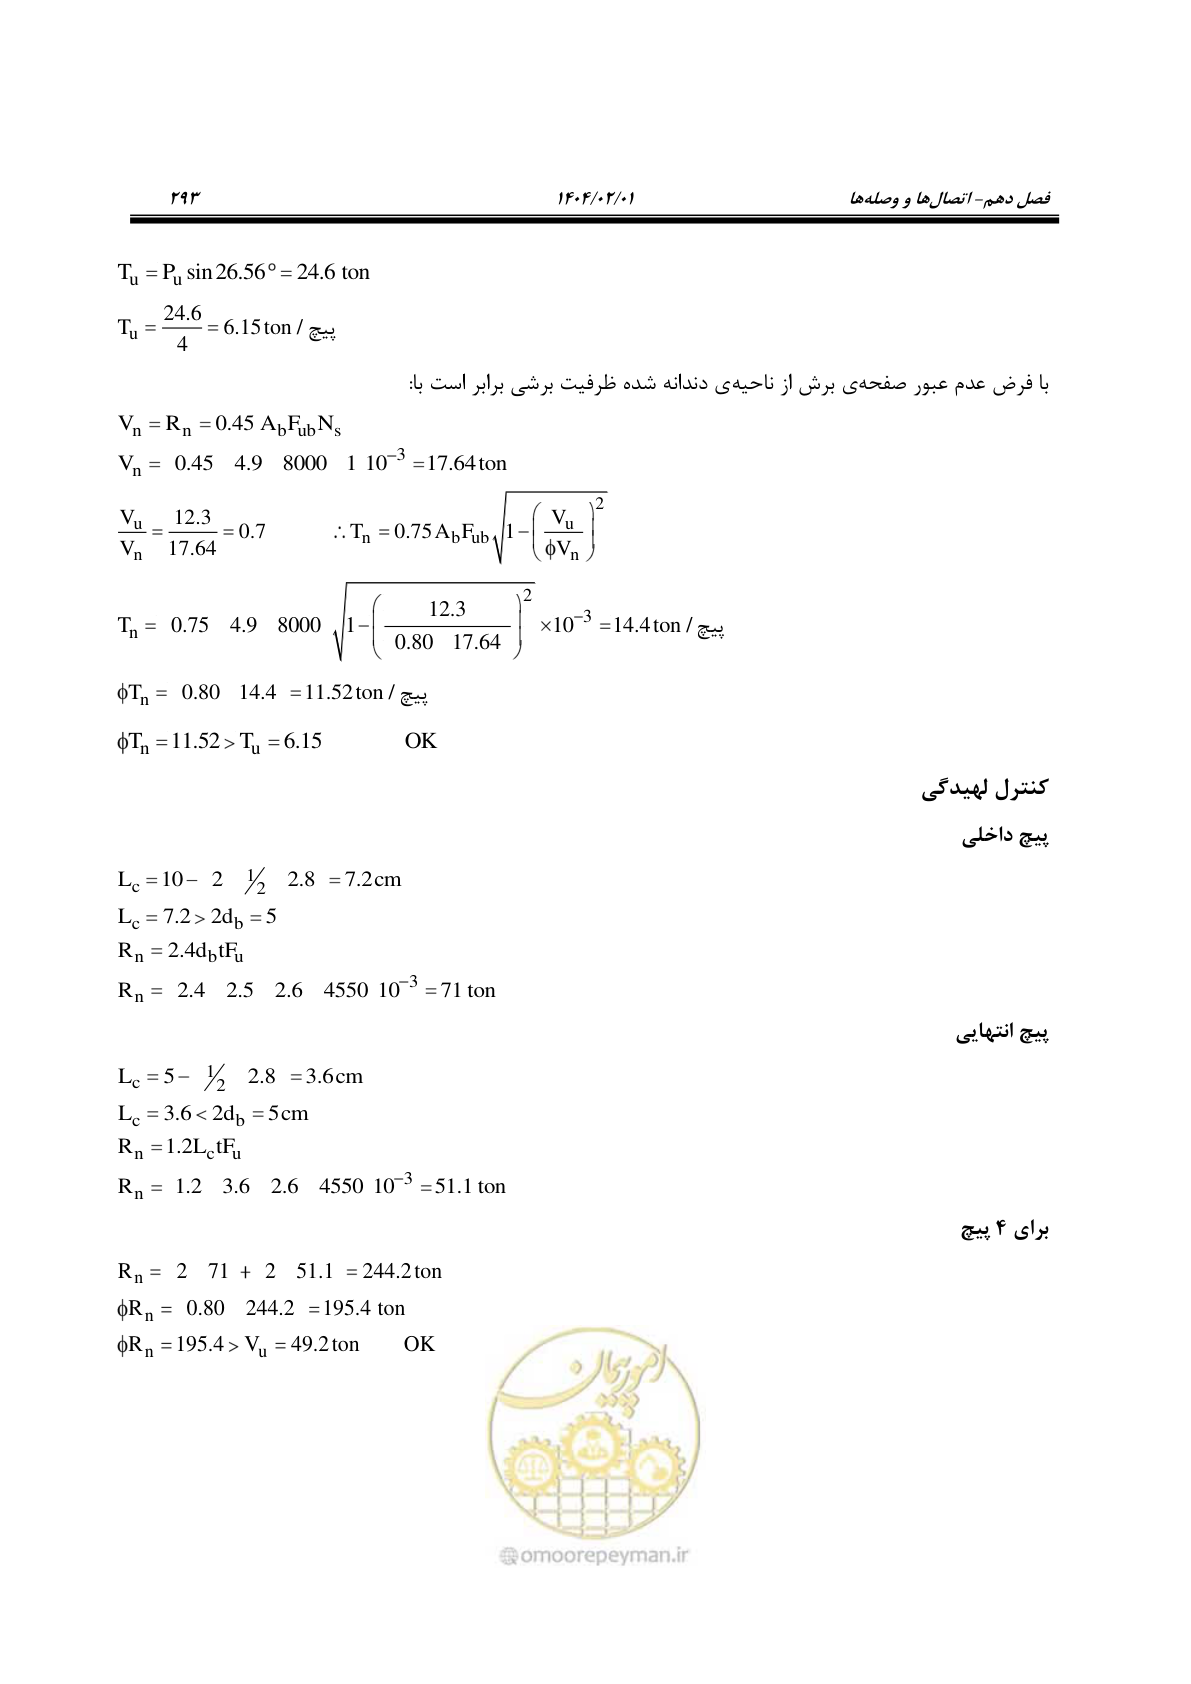 فصل دهم- اتصال‌ها و وصله‌ها ۱۴۰۴/۰۲/۰۱ ۲۹۳
T_u = P_u sin 26.56° = 24.6 ton
T_u = 24.6/4 = 6.15 ton / پیچ
با فرض عدم عبور صفحه‌ی برش از ناحیه‌ی دندانه شده ظرفیت برشی برابر است با:
V_n = R_n = 0.45 A_b F_ub N_s
V_n = 0.45 4.9 8000 1 10^−3 = 17.64 ton
V_u/V_n = 12.3/17.64 = 0.7 ∴ T_n = 0.75 A_b F_ub √(1 − (V_u/ϕV_n)^2)
T_n = 0.75 4.9 8000 √(1 − (12.3/(0.80 17.64))^2) ×10^−3 = 14.4 ton / پیچ
ϕT_n = 0.80 14.4 = 11.52 ton / پیچ
ϕT_n = 11.52 > T_u = 6.15 OK
کنترل لهیدگی
پیچ داخلی
L_c = 10 − 2 1/2 2.8 = 7.2 cm
L_c = 7.2 > 2d_b = 5
R_n = 2.4 d_b t F_u
R_n = 2.4 2.5 2.6 4550 10^−3 = 71 ton
پیچ انتهایی
L_c = 5 − 1/2 2.8 = 3.6 cm
L_c = 3.6 < 2d_b = 5 cm
R_n = 1.2 L_c t F_u
R_n = 1.2 3.6 2.6 4550 10^−3 = 51.1 ton
برای ۴ پیچ
R_n = 2 71 + 2 51.1 = 244.2 ton
ϕR_n = 0.80 244.2 = 195.4 ton
ϕR_n = 195.4 > V_u = 49.2 ton OK
امور پیمان
omoorepeyman.ir